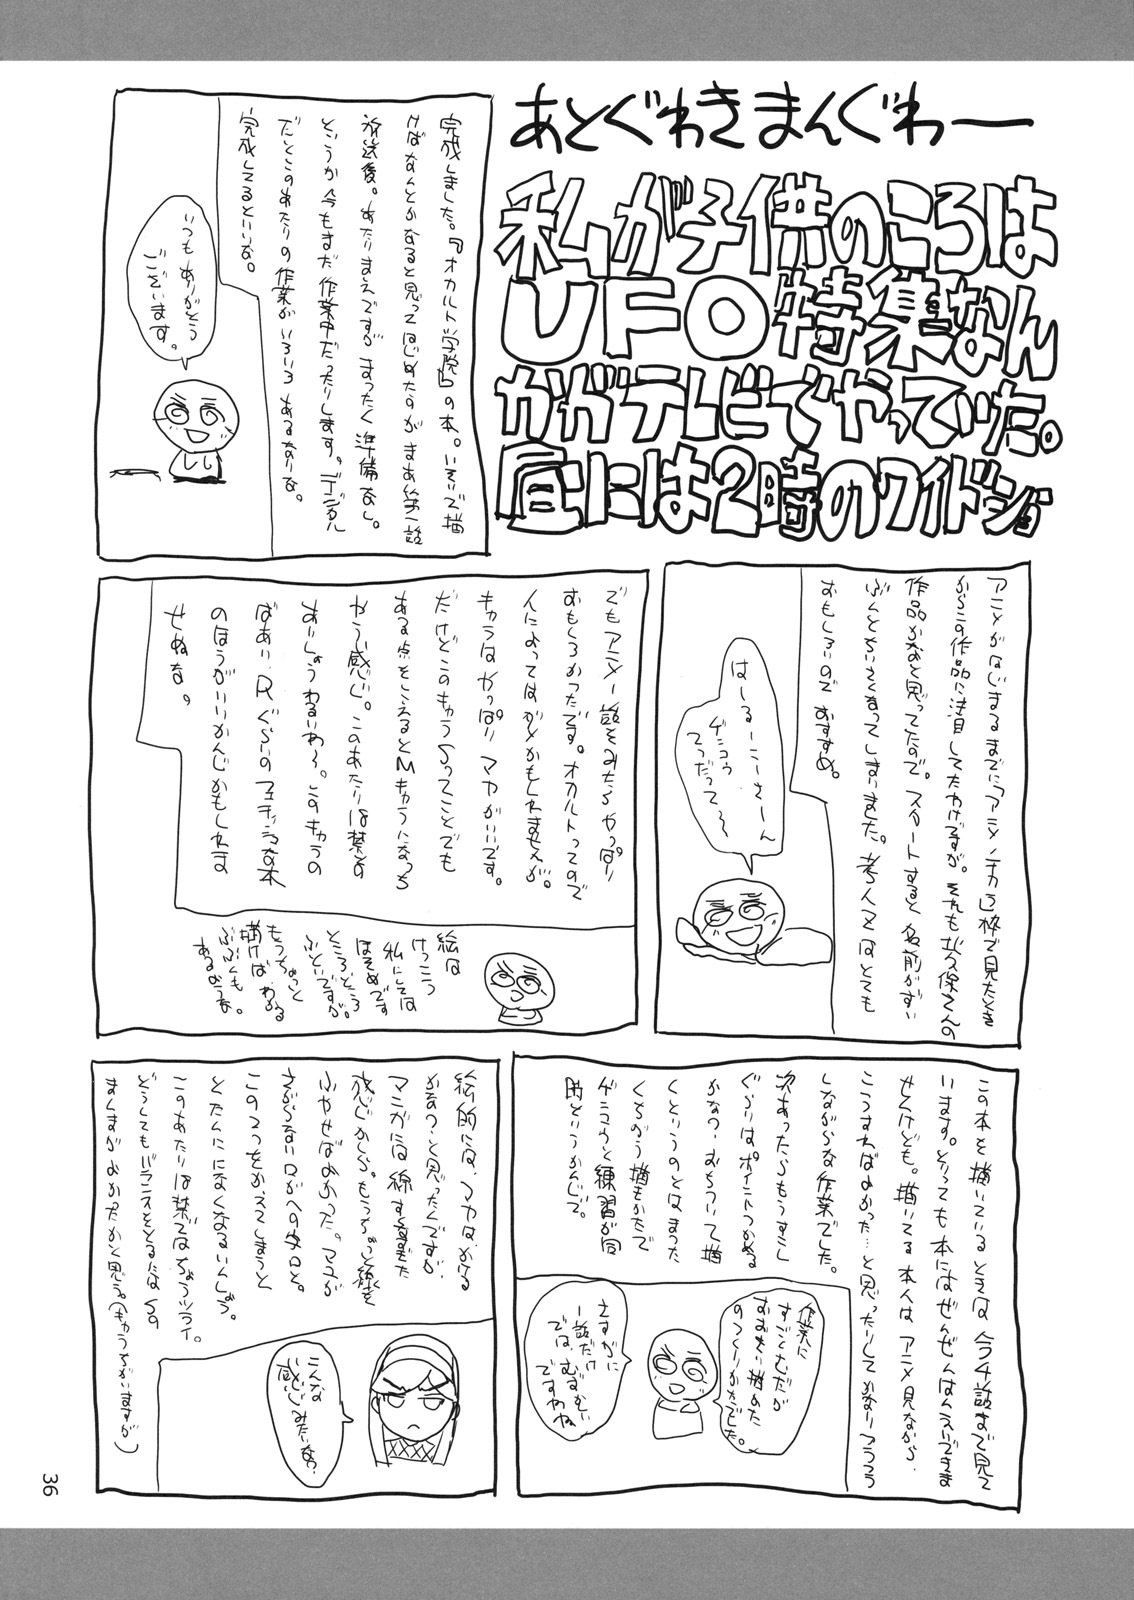 あとぐわきまんぐわー
私が子供のころは
UFO特集なん
かがテレビでやっていた。
昼には2時のワイドショ
完成しました。『オカルト学院』の本。いそいで描
けばなんとかなると思ってはじめたのがまあ第一話
放送後。あたりまえですがまったく準備なし。
というか今もまだ作業中だったりします。デジタル
だとこのあたりの作業がいろいろあるなりな。
完成してるといいな。
いつもありがとう
ございます。
アニメがはじまるまでに「アニメノチカラ」枠で見たとき
からこの作品に注目してたわけですが。それも
作品かなと思ってたので。スタートすると名前がずい
ぶんと小さくなってしまいました。
おもしろいのでおすすめ。
はーるーこーさーん
ゲンコウ
てつだって～
でもアニメ一話をみたらやっぱり
おもしろかったです。オカルトってので
人によってはダメかもしれませんが。
キャラはやっぱりマヤがいいです。
だけどこのキャラSってことでも
ある点をこえるとMキャラになっち
ゃう感じ。このあたりは禁書の
あいしょうわるいわ～。このキャラの
ばあい、Rぐらいのフェチッシュな本
のほうがいいかんじかもしれま
せぬな。
絵は
けっこう
私にしては
ほそめです
ところどころ
ふといですが。
もうちょっと
描けばわかる
ぶぶんも
あるようだな。
この本を描いているときは今4話まで見て
います。とっても本にはぜんぜんはんえいできま
せんけども。描いてる本人はアニメ見ながら、
こうすればよかった…と思ったりしてかなりフラフラ
しながらな作業でした。
次あったらもうすこし
ぐらいはポイントつかめる
かなっ。おちついて描
くというのとはまった
くちがう描きかたで
ゲンコウと練習が同
時というかんじで。
作業に
すごくむだが
おおきい描めた
のつくりかたでした。
さすがに
一話だけ
では、むずかしい
ですわね
絵的には、マヤは、かける
かなっ、と思ったんですが
マンガには線すくなすぎた
感じかしら。もうちょっと線を
ふやせばよかった。マユが
さがらない、口がへの字口と。
この2つをかえてしまうと
とたんにになくなるいんしょう。
このあたりは禁書ではちょうツライ。
どうしてもバランスをとるにはSの
まんまがよかったかと思う。(もうちがいますが)
こんな
感じみたいな?
36